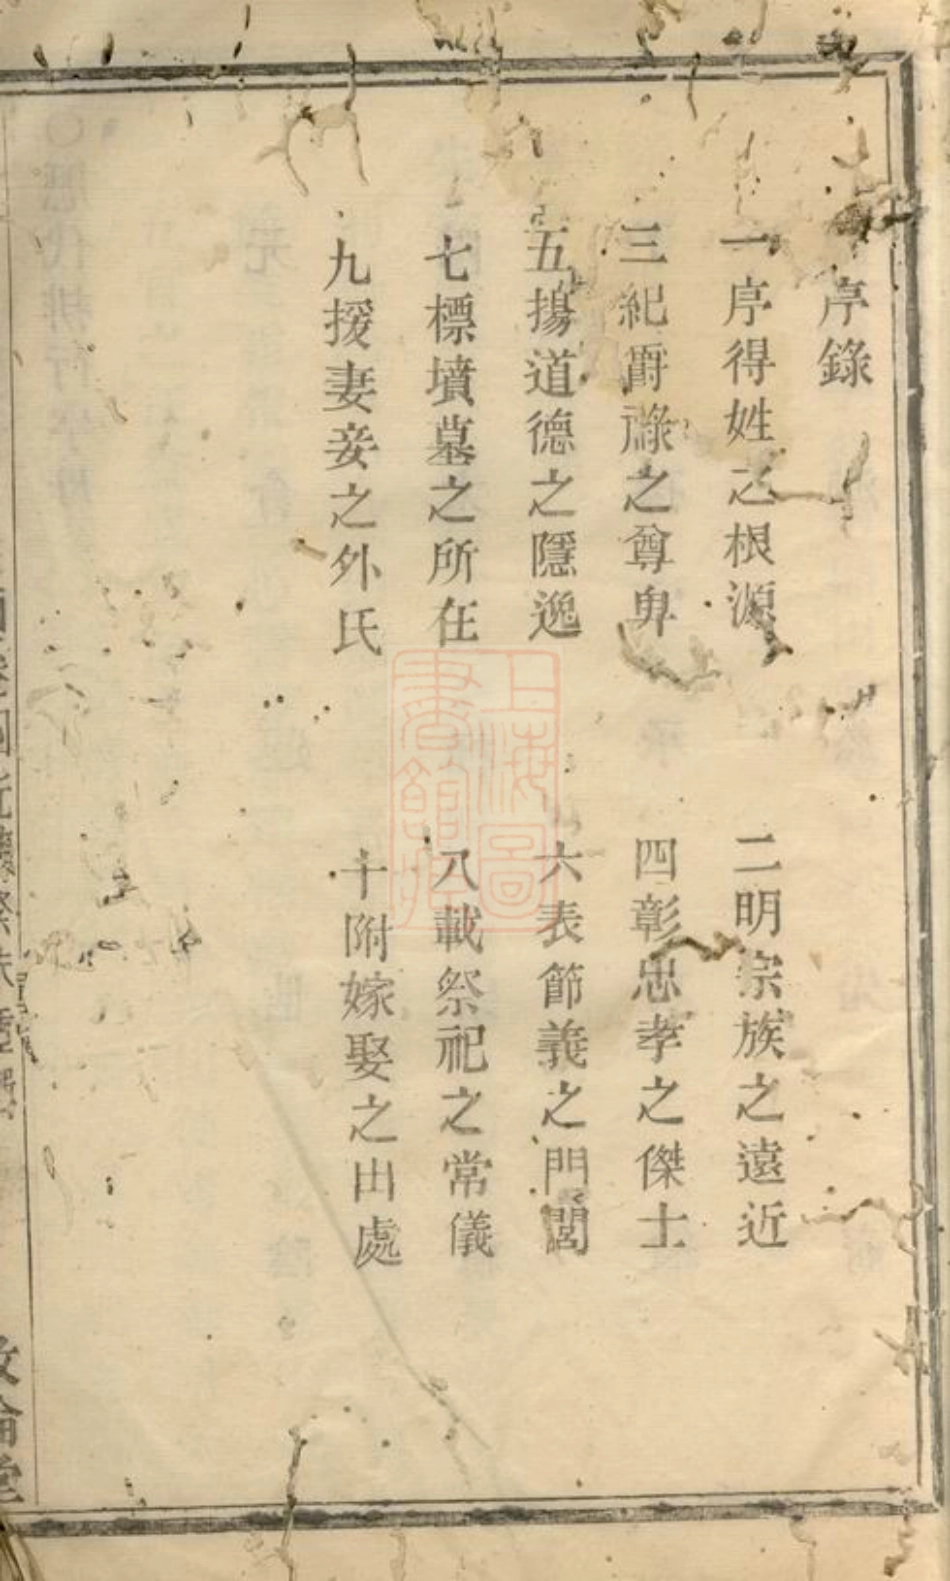 序錄
一序得姓之根源
二明宗族之遠近
三紀爵祿之尊卑
四彰忠孝之傑士
五揚道德之隱逸
六表節義之門閭
七標墳墓之所在
八載祭祀之常儀
九援妻妾之外氏
十附嫁娶之出處
敦倫堂
上海圖書館藏